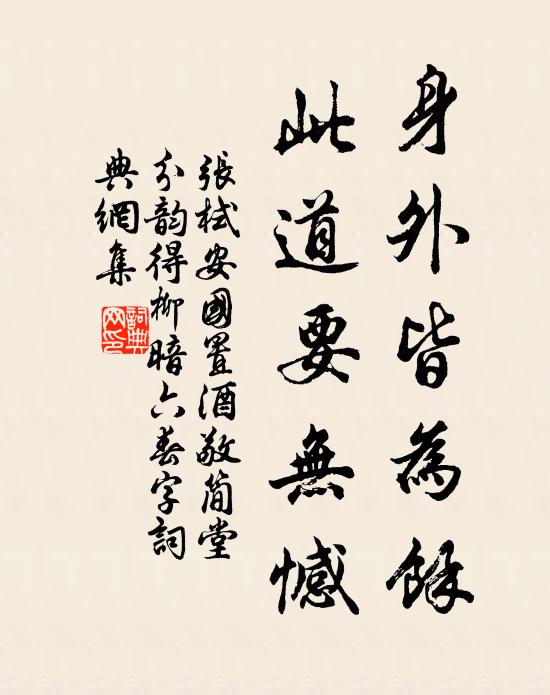 身外皆為餘
此道要無憾
張栻安國置酒敬簡堂
分韵得柳暗六春字詞
典網集
詞典网印